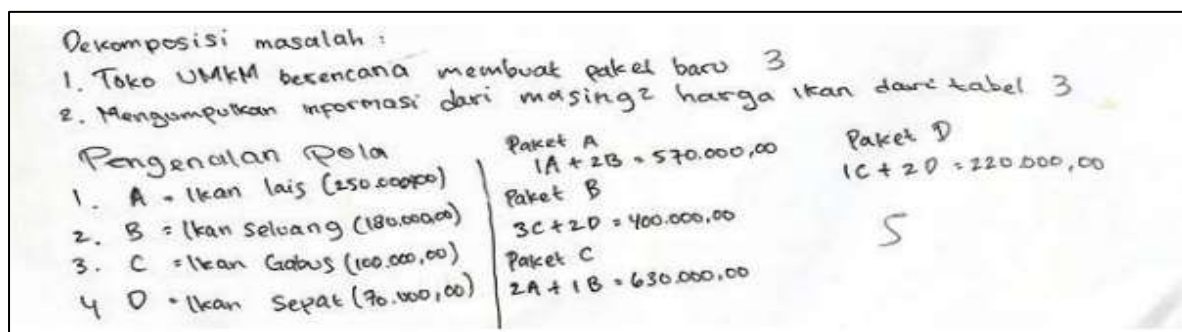 Dekomposisi masalah :
1. Toko UMKM berencana membuat paket baru 3
2. Mengumpulkan informasi dari masing2 harga ikan dari tabel 3
Pengenalan Pola
1. A = Ikan lais (250.000,00)
2. B = Ikan Seluang (180.000,00)
3. C = Ikan Gabus (100.000,00)
4 D = Ikan Sepat (70.000,00)
Paket A
1A + 2B = 570.000,00
Paket B
3C + 2D = 400.000,00
Paket C
2A + 1B = 630.000,00
Paket D
1C + 2D = 220.000,00
5